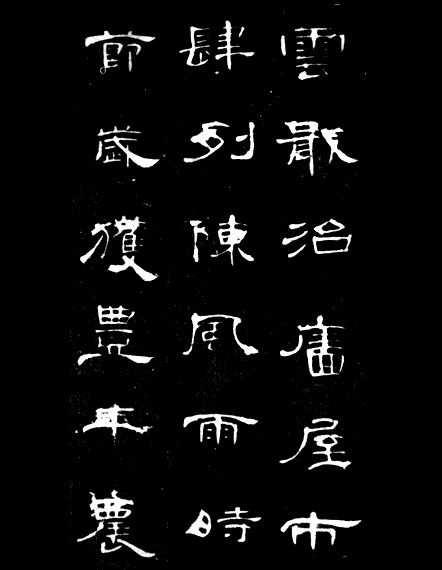 雲散治廬屋市
肆列陳風雨時
節歲獲豊年農